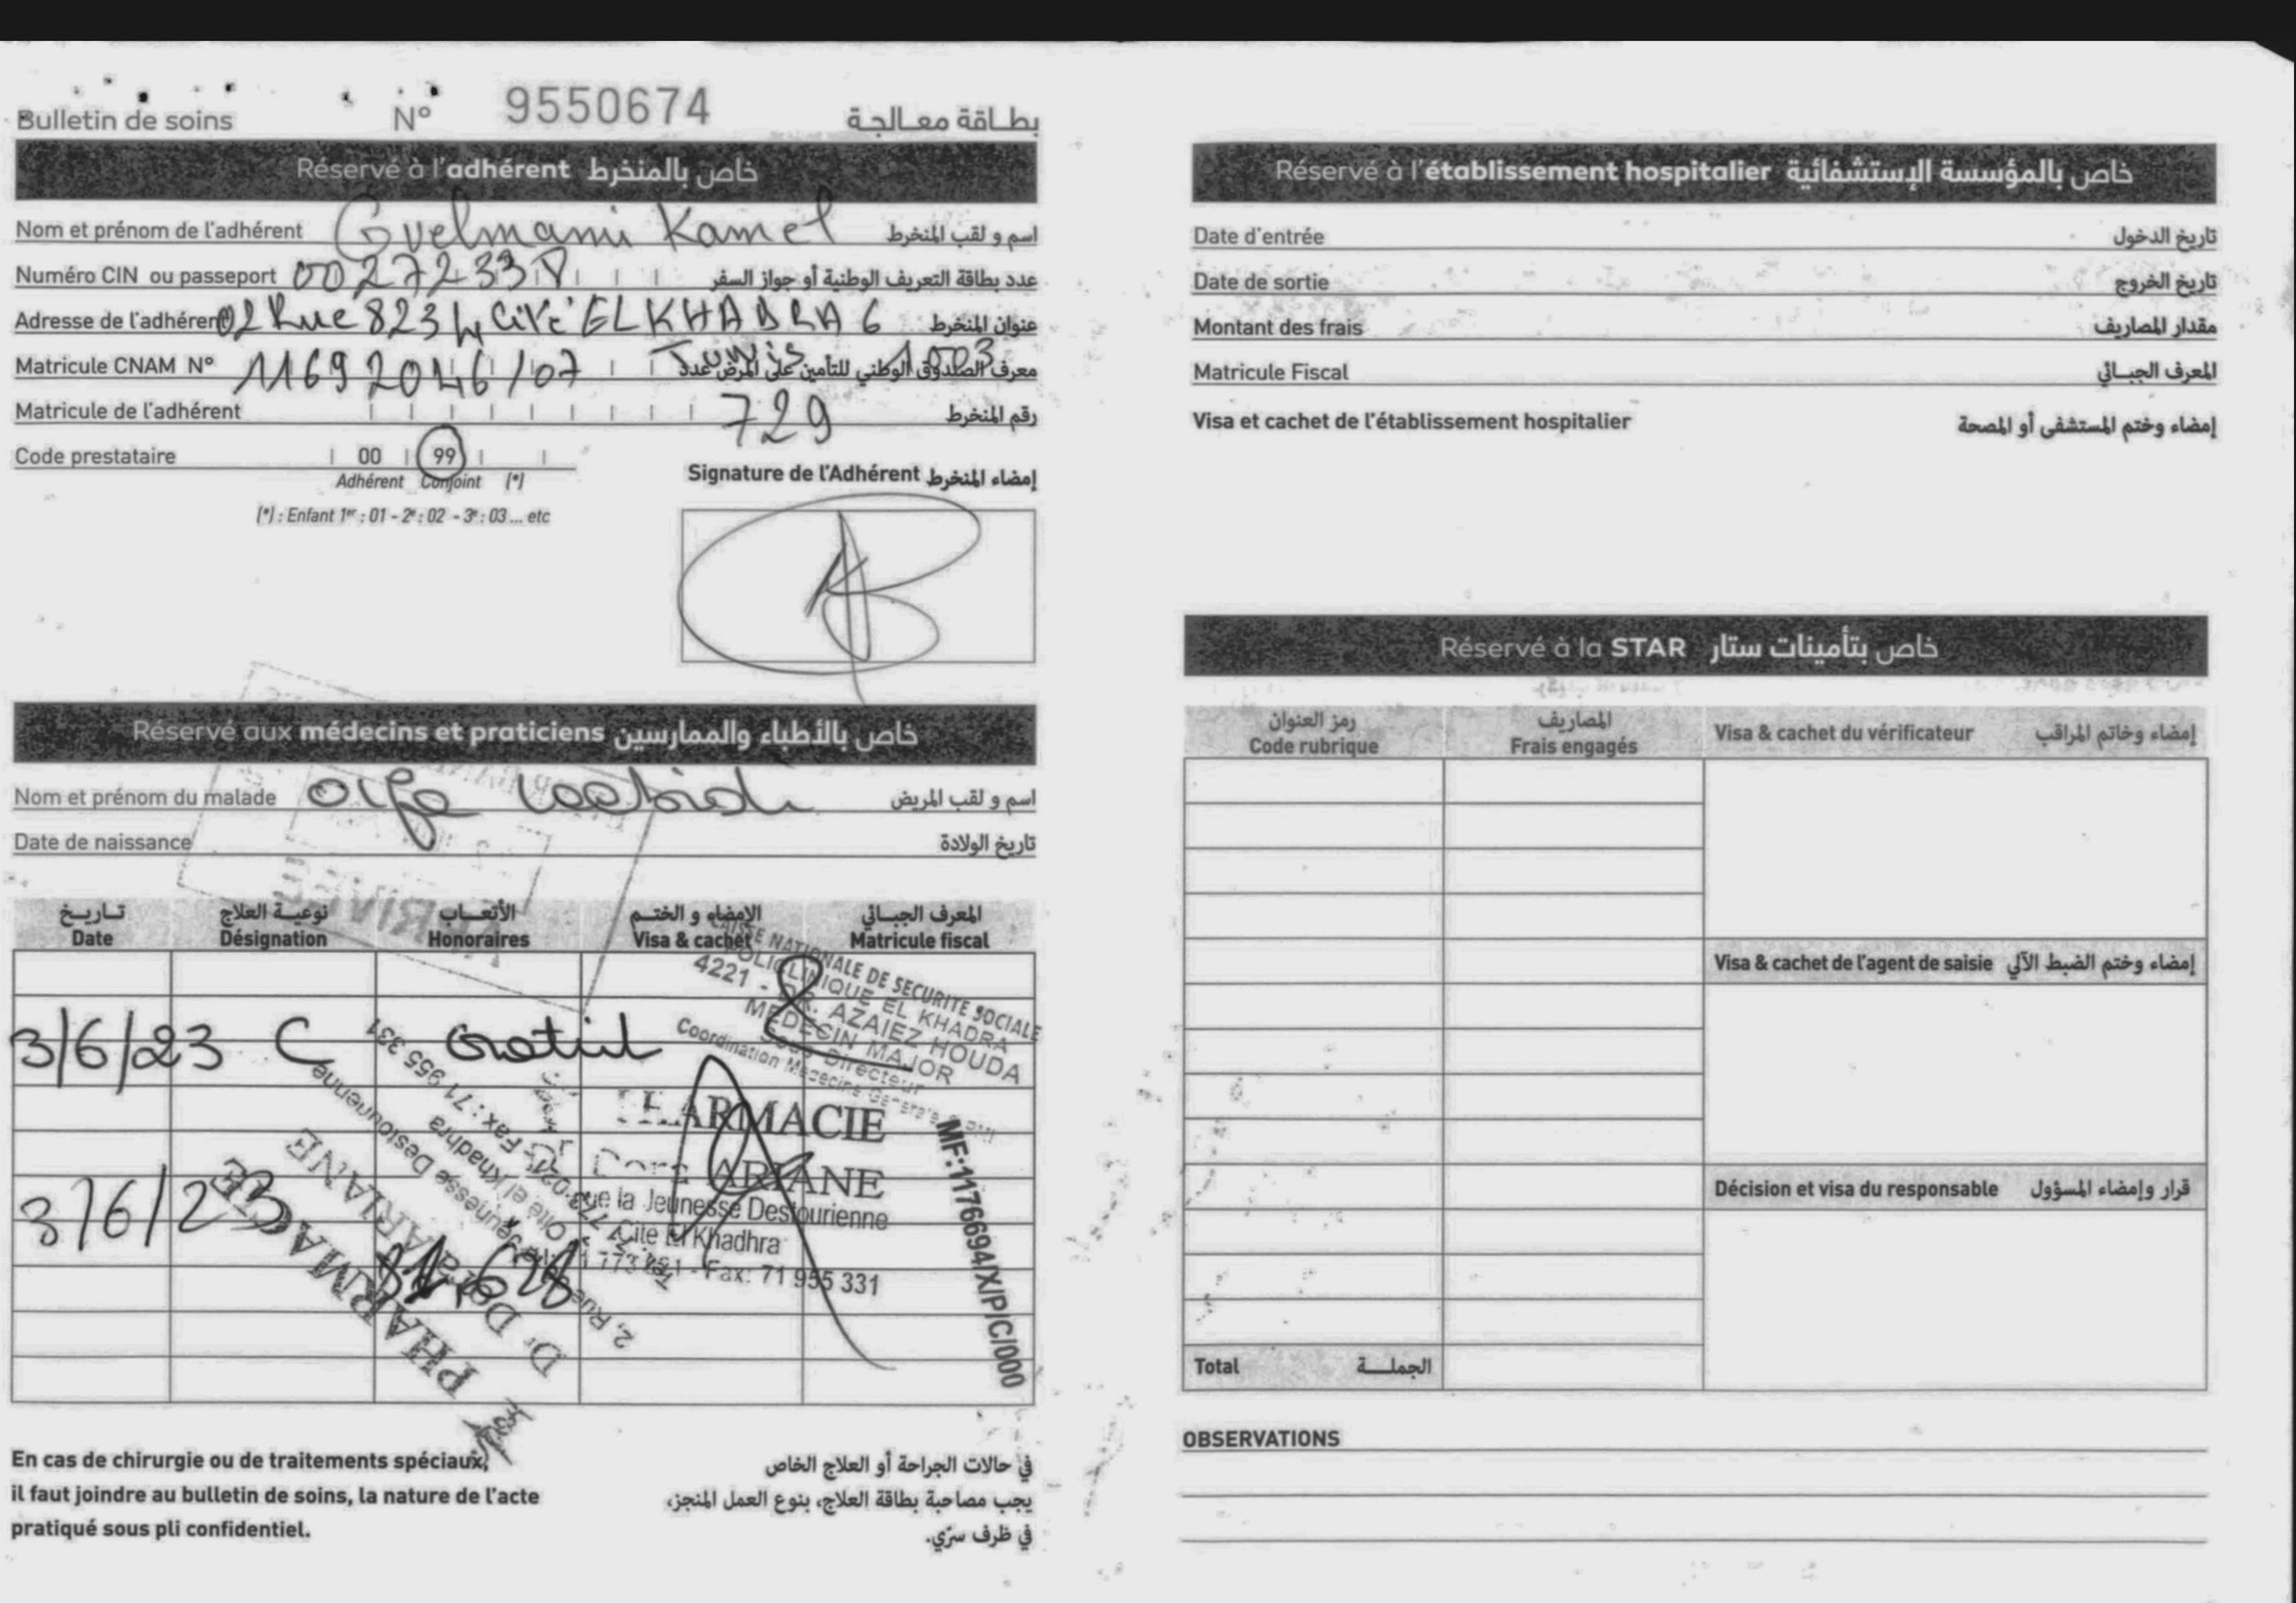 Bulletin de soins N° 9550674 بطاقة معالجة
Réservé à l'adhérent خاص بالمنخرط
Nom et prénom de l'adhérent Guelmami Kamel اسم و لقب المنخرط
Numéro CIN ou passeport 00272338 عدد بطاقة التعريف الوطنية أو جواز السفر
Adresse de l'adhérent 02 Rue 8234 Cité EL KHADRA 6 عنوان المنخرط
Tunis 1003
Matricule CNAM N° 11692046/07 معرف الصندوق الوطني للتأمين على المرض عدد
Matricule de l'adhérent 729 رقم المنخرط
Code prestataire 00 99
Adhérent Conjoint (*)
(*) : Enfant 1er : 01 - 2e : 02 - 3e : 03 ... etc
Signature de l'Adhérent إمضاء المنخرط
Réservé aux médecins et praticiens خاص بالأطباء والممارسين
Nom et prénom du malade اسم و لقب المريض
Date de naissance تاريخ الولادة
تاريخ نوعية العلاج الأتعاب الإمضاء و الختم المعرف الجبائي
Date Désignation Honoraires Visa & cachet Matricule fiscal
CAISSE NATIONALE DE SECURITE SOCIALE
POLICLINIQUE EL KHADRA
4221 - DR. AZAIEZ HOUDA
MEDECIN MAJOR
Sous Directeur
Coordination Médecine Générale
3/6/23 C Gratuit
PHARMACIE
Dora ARIANE
Rue la Jeunesse Destourienne
Cité El Khadhra
Fax: 71 955 331
MF:1176694/X/P/C/000
3/6/23
PHARMACIE
Dr Dora ARIANE
2, Rue de la Jeunesse Destourienne
Cité el Khadhra
Tél: 71 773 021 - Fax : 71 955 331
En cas de chirurgie ou de traitements spéciaux,
il faut joindre au bulletin de soins, la nature de l'acte
pratiqué sous pli confidentiel.
في حالات الجراحة أو العلاج الخاص
يجب مصاحبة بطاقة العلاج، بنوع العمل المنجز،
في ظرف سرّي.
Réservé à l'établissement hospitalier خاص بالمؤسسة الإستشفائية
Date d'entrée تاريخ الدخول
Date de sortie تاريخ الخروج
Montant des frais مقدار المصاريف
Matricule Fiscal المعرف الجبائي
Visa et cachet de l'établissement hospitalier إمضاء وختم المستشفى أو المصحة
Réservé à la STAR خاص بتأمينات ستار
رمز العنوان المصاريف
Code rubrique Frais engagés Visa & cachet du vérificateur إمضاء وخاتم المراقب
Visa & cachet de l'agent de saisie إمضاء وختم الضبط الآلي
Décision et visa du responsable قرار وإمضاء المسؤول
Total الجملة
OBSERVATIONS